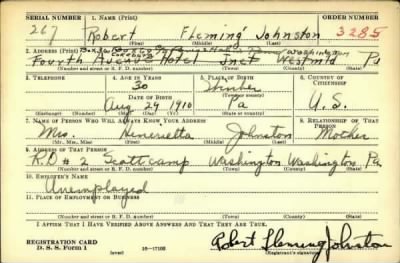 SERIAL NUMBER 1. NAME (Print) ORDER NUMBER
267 Robert Fleming Johnston 3285
(First) (Middle) (Last)
2. ADDRESS (Print)
Fourth Avenue Hotel Jnct Westmld Pa
(Number and street or R. F. D. number) (Town) (County) (State)
3. TELEPHONE 4. AGE IN YEARS 5. PLACE OF BIRTH 6. COUNTRY OF CITIZENSHIP
30
DATE OF BIRTH
Aug 29 1910 Pa U.S.
(Exchange) (Number) (Mo.) (Day) (Yr.) (State or country)
7. NAME OF PERSON WHO WILL ALWAYS KNOW YOUR ADDRESS 8. RELATIONSHIP OF THAT PERSON
Mrs. Henrietta Johnston Mother
(Mr., Mrs., Miss) (First) (Middle) (Last)
9. ADDRESS OF THAT PERSON
R.D # 2 Scott camp Washington Washington Pa.
(Number and street or R. F. D. number) (Town) (County) (State)
10. EMPLOYER'S NAME
Unemployed
11. PLACE OF EMPLOYMENT OR BUSINESS
(Number and street or R. F. D. number) (Town) (County) (State)
I AFFIRM THAT I HAVE VERIFIED ABOVE ANSWERS AND THAT THEY ARE TRUE.
REGISTRATION CARD
D. S. S. Form 1 (over) 16—17105
Robert Fleming Johnston
(Registrant's signature)